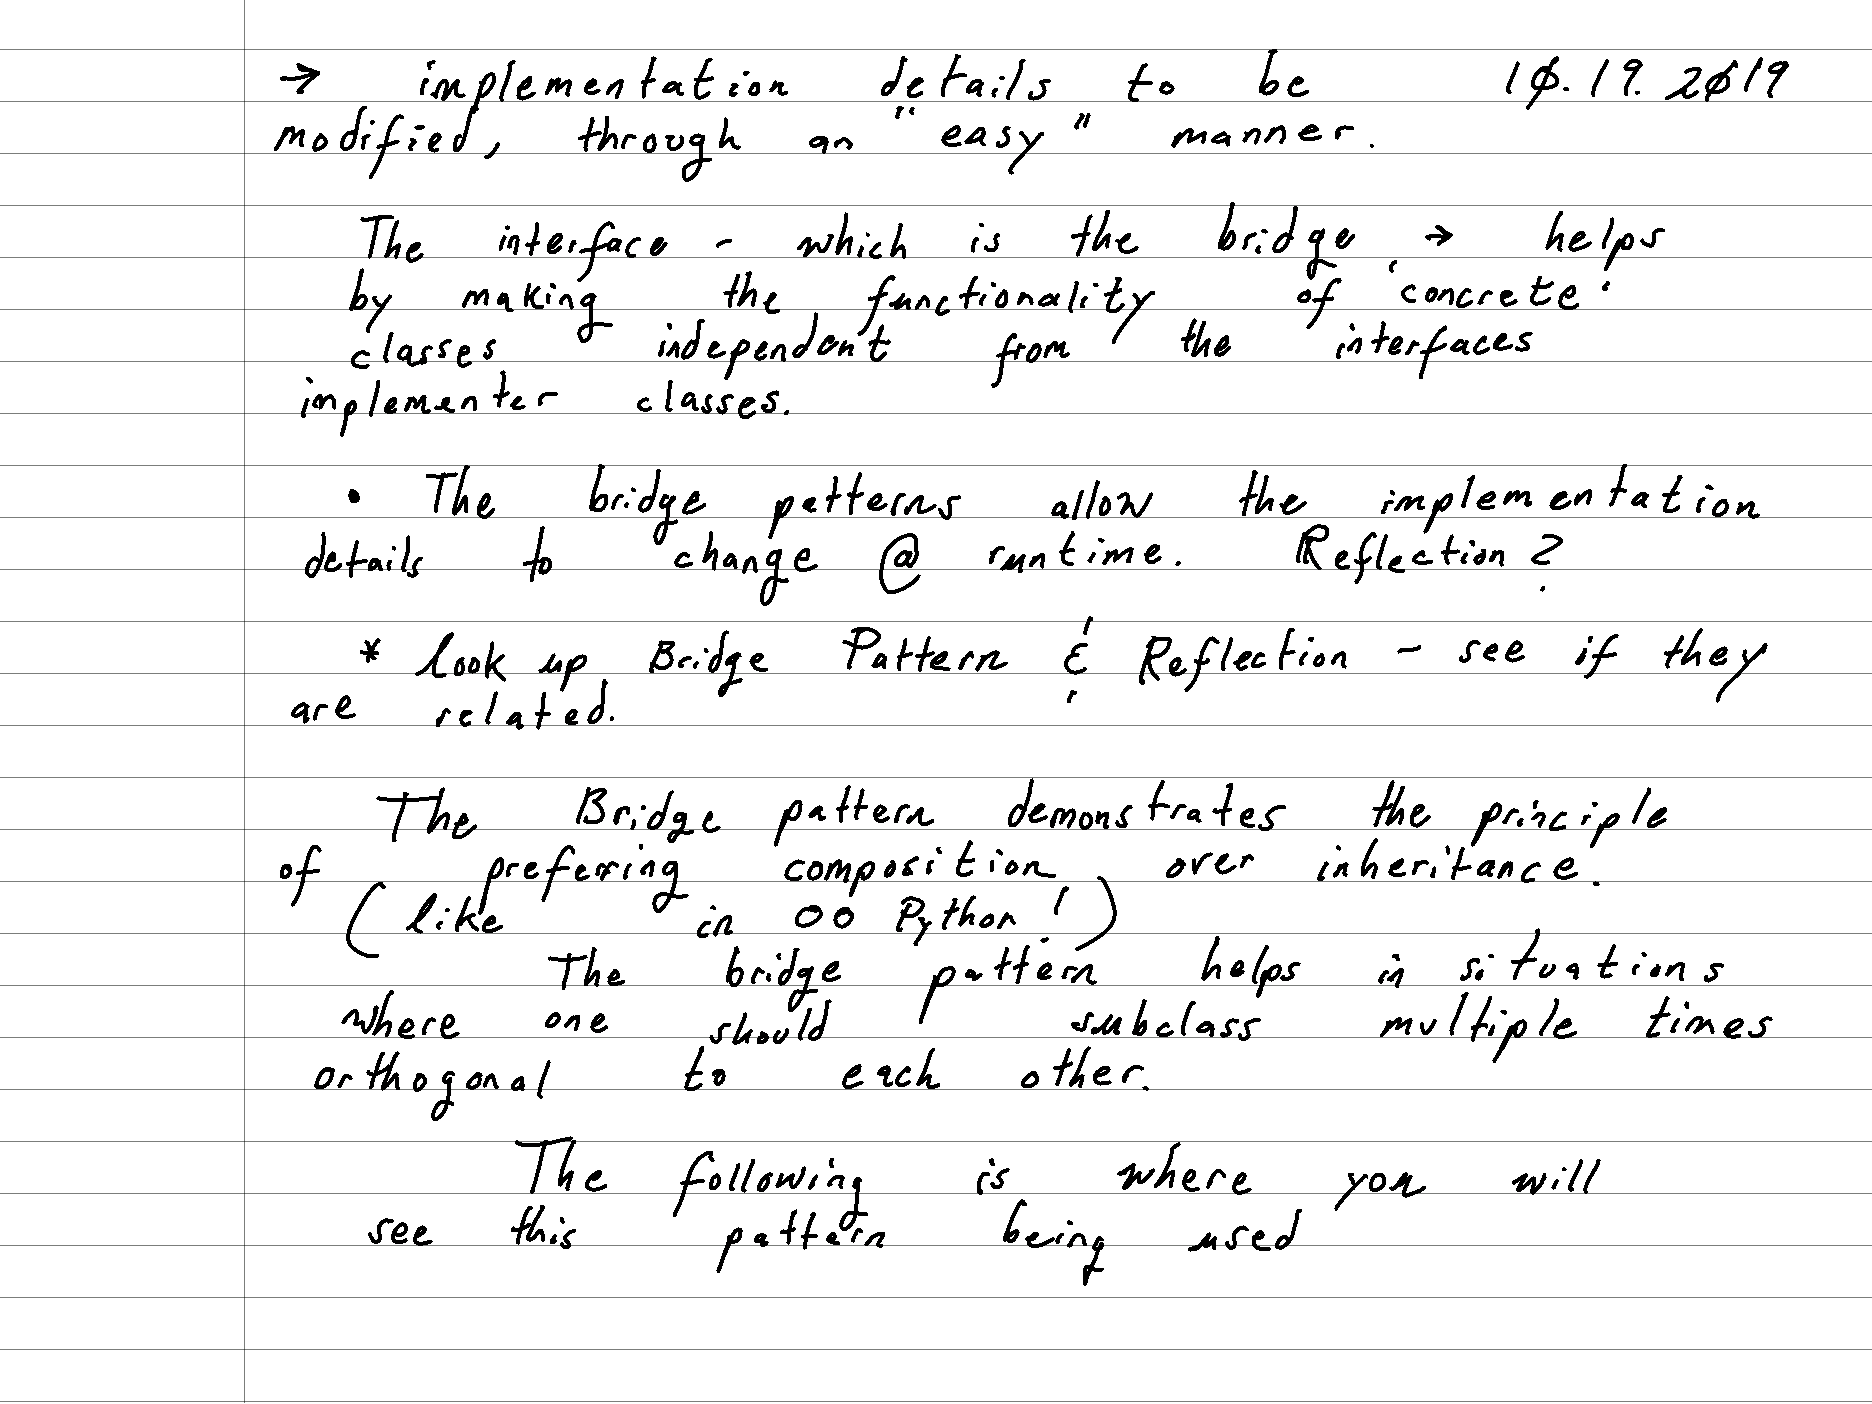 → implementation details to be 10.19.2019
modified, through an "easy" manner.
The interface - which is the bridge → helps
by making the functionality of 'concrete'
classes independent from the interfaces
implementer classes.
• The bridge patterns allow the implementation
details to change @ runtime. Reflection?
* look up Bridge Pattern & Reflection - see if they
are related.
The Bridge pattern demonstrates the principle
of preferring composition over inheritance.
(like in OO Python!)
The bridge pattern helps in situations
where one should subclass multiple times
orthogonal to each other.
The following is where you will
see this pattern being used